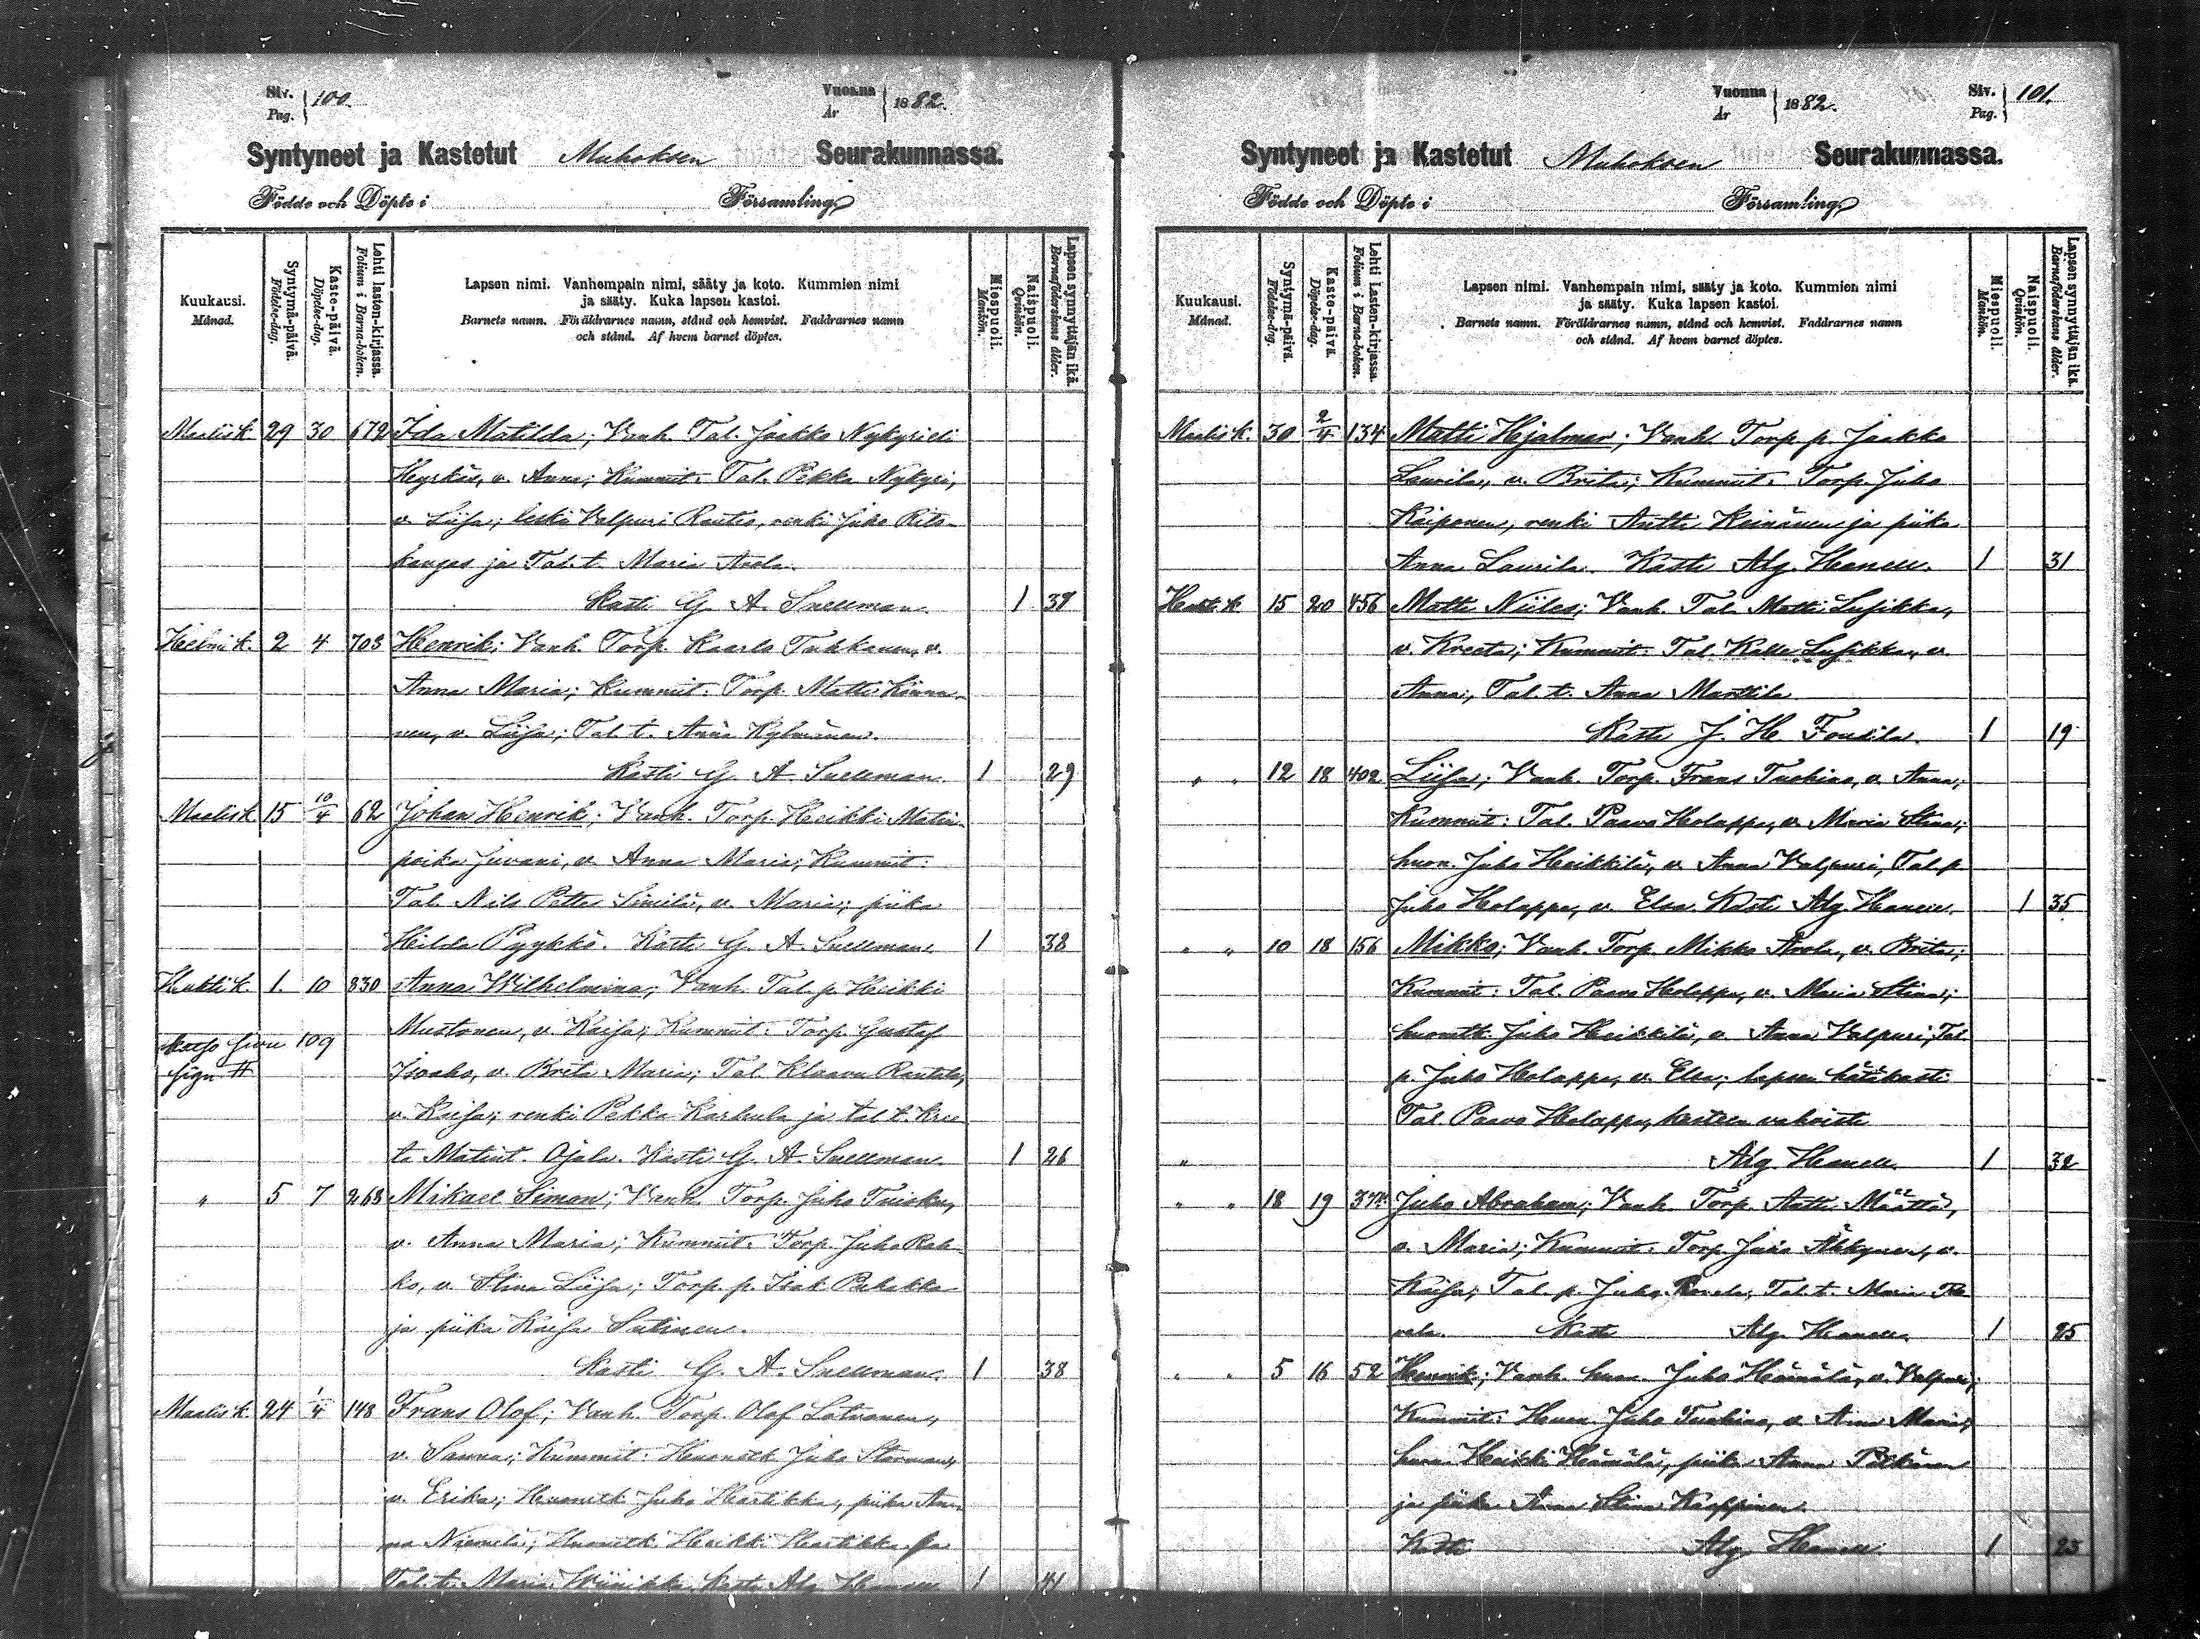 Siv. Pag. 100.
Vuonna År 1882.
Syntyneet ja Kastetut Muhoksen Seurakunnassa.
Födde och Döpte i Församling
Kuukausi. Månad.
Syntymä-päivä. Födelse-dag.
Kaste-päivä. Döpelse-dag.
Lehti lasten-kirjassa. Folium i Barna-boken.
Lapsen nimi. Vanhempain nimi, sääty ja koto. Kummien nimi
ja sääty. Kuka lapsen kastoi.
Barnets namn. Föräldrarnes namn, stånd och hemvist. Faddrarnes namn
och stånd. Af hvem barnet döptes.
Miespuoli. Mankön.
Naispuoli. Qvinkön.
Lapsen synnyttäjän ikä. Barnaföderskans ålder.
Maalisk. 29 30 672 Ida Matilda; Vanh. Tal. Jaakko Nykyri eli
Hyrkäs, v. Anna; Kummit: Tal. Pekka Nykyri,
v. Liisa; leski Valpuri Rautio, renki Juho Rits-
kangas ja Tal. t. Maria Avola.
Kasti G. A. Snellman. 1 38
Helmik. 2 4 703 Henrik; Vanh. Torp. Kaarlo Tukkanen, v.
Anna Maria; Kummit: Torp. Matti Kinnu-
nen, v. Liisa; Tal. t. Anna Kylmänen.
Kasti G. A. Snellman. 1 29
Maalisk 15 10/4 62 Johan Henrik; Vanh. Torp. Heikki Matin-
poika Juvani, v. Anna Maria; Kummit:
Tal. Nils Petter Similä, v. Maria; piika
Hilda Pyykkö. Kasti G. A. Snellman. 1 38
Huhtik. 1. 10 830 Anna Wilhelmina; Vanh. Tal. p. Heikki
Mustonen, v. Kaisa; Kummit: Torp. Gustaf
katso sivu 109
sign #
Isoaho, v. Brita Maria; Tal. Klaavu Rantala,
v. Kaisa; renki Pekka Karhula ja tal. t. Kree
ta Matint. Ojala. Kasti G. A. Snellman. 1 26
" 5 7 268 Mikael Simon; Vanh. Torp. Juho Tuisku,
v. Anna Maria; Kummit: Torp. Juho Rah-
ko, v. Stina Liisa; Torp. p. Isak Puhakka
ja piika Kaisa Sutinen.
Kasti G. A. Snellman. 1 38
Maalisk. 24 1/4 148 Frans Olof; Vanh. Torp. Olof Lotvonen,
v. Sanna; Kummit: Huonetk. Juho Storman,
v. Erika; Huonetk. Juho Hartikka, piika An-
na Niemelä; Huonetk. Heikki Hartikka ja
Tal. t. Maria Kasti Alg. Hanell 1 41
Vuonna År 1882.
Siv. Pag. 101.
Syntyneet ja Kastetut Muhoksen Seurakunnassa.
Födde och Döpte i Församling
Kuukausi. Månad.
Syntymä-päivä. Födelse-dag.
Kaste-päivä. Döpelse-dag.
Lehti Lasten-kirjassa. Folium i Barna-boken.
Lapsen nimi. Vanhempain nimi, sääty ja koto. Kummien nimi
ja sääty. Kuka lapsen kastoi.
Barnets namn. Föräldrarnes namn, stånd och hemvist. Faddrarnes namn
och stånd. Af hvem barnet döptes.
Miespuoli. Mankön.
Naispuoli. Qvinkön.
Lapsen synnyttäjän ikä. Barnaföderskans ålder.
Maalisk. 30 2/4 134 Matti Hjalmar; Vanh. Torp. p. Jaakko
Laurila, v. Brita; Kummit: Torp. Juho
Kaiponen, renki Antti Keinänen ja piika
Anna Laurila. Kasti Alg. Hanell. 1 31
Huhtik. 15 20 456 Matti Niiles; Vanh. Tal. Matti Lusikka,
v. Kreeta; Kummit: Tal. Kalle Lusikka, v.
Anna, Tal. t. Anna Marttila
Kasti J. H. 1 19
" " 12 18 402 Liisa; Vanh. Torp. Frans Tuohino, v. Anna;
Kummit: Tal. Paavo Holappa, v. Maria Stina;
huon. Juho Heikkilä, v. Anna Valpuri, Tal. p.
Juho Holappa, v. Elsa. Kasti Alg. Hanell. 1 35
" " 10 18 156 Mikko; Vanh. Torp. Mikko Avola, v. Brita;
Kummit: Tal. Paavo Holappa, v. Maria Stina;
huonetk. Juho Heikkilä, v. Anna Valpuri; Tal.
p. Juho Holappa, v. Elsa; lapsen hätäkasti
Tal. Paavo Holappa, kasteen vahvisti
" Alg. Hanell. 1 32
" " 18 19 Juho Abraham; Vanh. Torp. Antti Määttä,
v. Maria; Kummit: Torp. Juho v.
Kaisa; Tal. p. Juho Tal. t. Maria
Kasti Alg. Hanell. 1 25
" " 5 16 52 Henrik; Vanh. huon. Juho Hämälä, v. Valpuri;
Kummit: Huon. Juho Tuohino, v. Anna Maria;
huon. Heikki Hämälä, piika Anna
ja piika Anna Stina Karppinen.
Kasti Alg. Hanell. 1 23